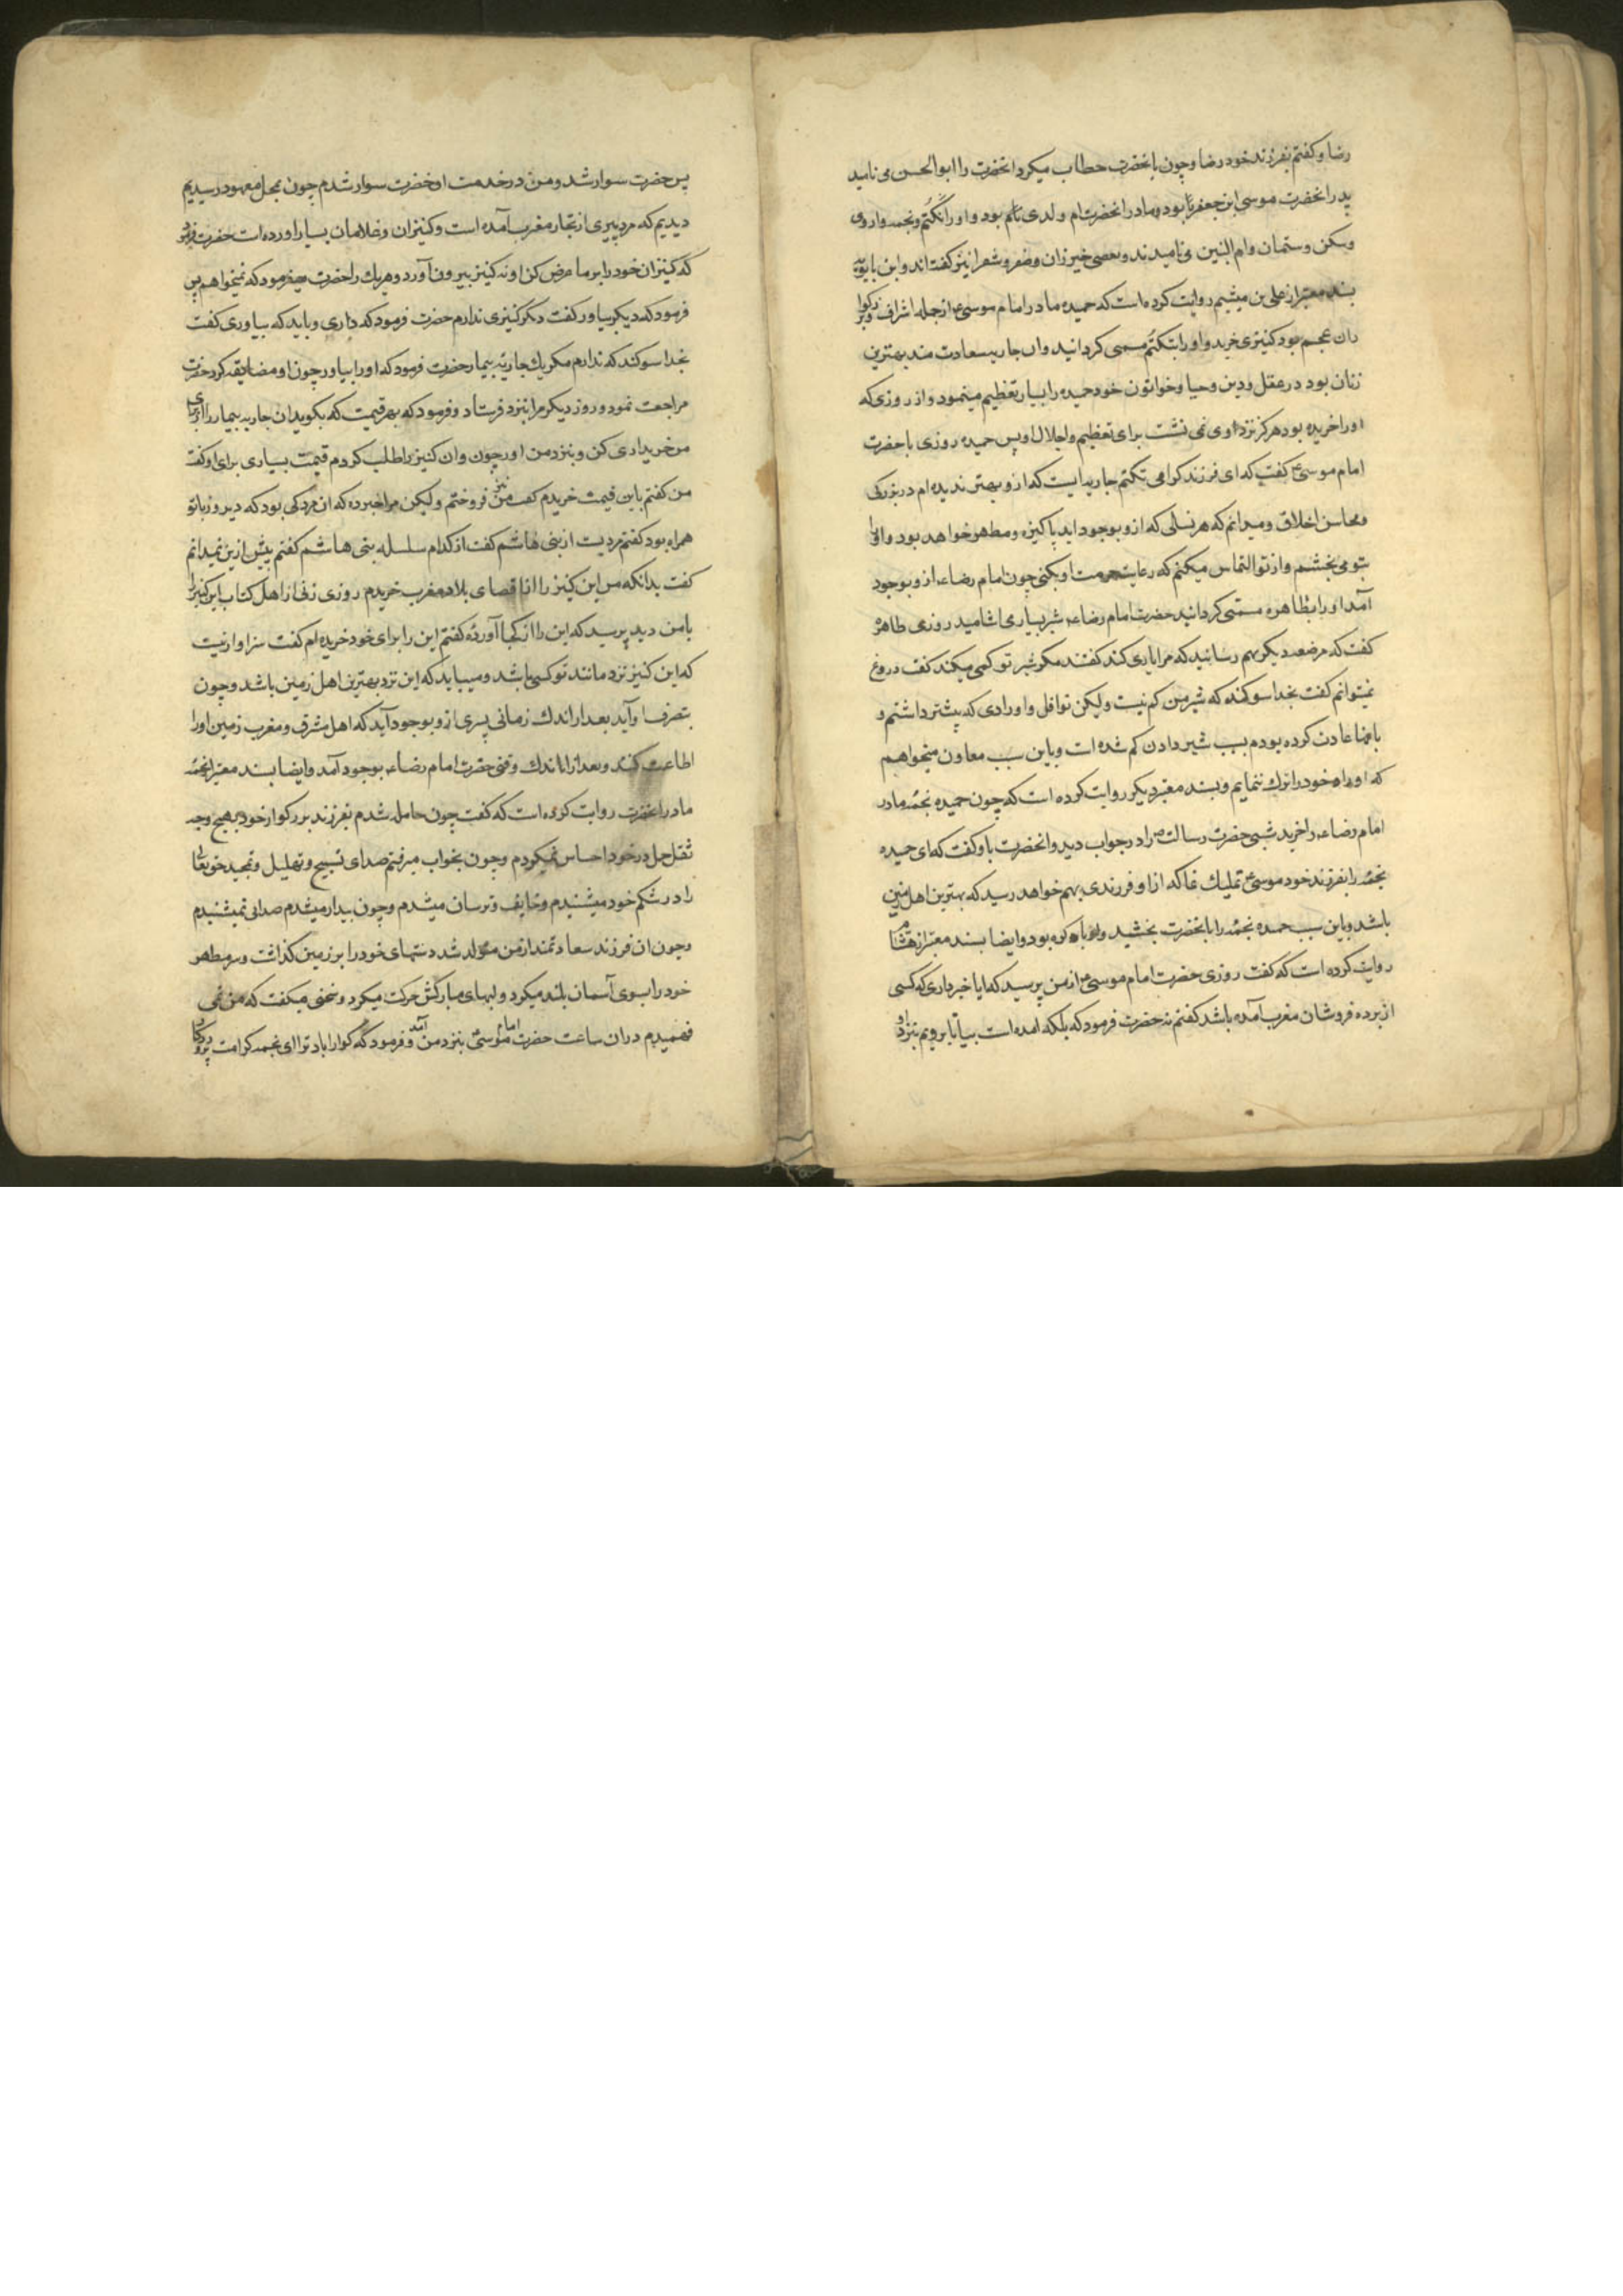 رضا و کفتم بفرزند خود رضا و چون بانحضرت خطاب میکرد انحضرت را ابو الحسن می نامید
پدر انحضرت موسی ابن جعفر بود و مادر انحضرت ام ولدی بود و او را تکتم و نجمه و اروی
و سکن و ستمان و ام البنین می نامیدند و بعضی خیزران و صقر و شقرا نیز کفته اند و ابن بابویه
بسند معتبر از علی بن میثم روایت کرده است که حمیده مادر امام موسی ع از جمله اشراف و بزرکوا
ران عجم بود کنیزی خرید و او را بتکتم مسمی کردانید و ان جاریه سعادت مند بهترین
زنان بود در عقل و دین و حیا و خواتون خود حمیده را بسیار تعظیم مینمود و از روزی که
او را خریده بود هرکز نزد اوی نمی نشت برای تعظیم و اجلال او پس حمیده روزی با حضرت
امام موسی ع کفت که ای فرزند کرامی تکتم جاریه ایست که از و بهتر ندیده ام در زیرکی
و محاسن اخلاق و میدانم که هر نسلی که از و بوجود اید پاکیزه و مطهر خواهد بود و او را
بتو می بخشم و از تو التماس میکنم که رعایت حرمت او بکنی چون امام رضا ع از و بوجود
آمد او را بطاهره مسمی کردانید حضرت امام رضا ع شیر بسیاری اشامید روزی طاهره
کفت که مرضعه دیکر بهم رسانید که مرا یاری کند کفتند مکر شیر تو کمی میکند کفت دروغ
نمیتوانم کفت بخدا سوکند که شیر من کم نیست ولیکن نوافل و اورادی که پیشتر داشتم و
بانها عادت کرده بودم بسبب شیر دادن کم شده است و باین سبب معاون میخواهم
که اوراد خود را ترک ننمایم و بسند معتبر دیکر روایت کرده است که چون حمیده نجمه مادر
امام رضا ع را خرید شبی حضرت رسالت ص را در جواب دید و انحضرت باو کفت که ای حمیده
نجمه را بفرزند خود موسی ع تملیک نما که از او فرزندی بهم خواهد رسید که بهترین اهل زمین
باشد و باین سبب حمده نجمه را بانحضرت بخشید و او باکره بود و ایضا بسند معتبر از هشام
روایت کرده است که کفت روزی حضرت امام موسی ع از من پرسید که ایا خبر داری که کسی
از برده فروشان مغرب آمده باشد کفتم نه حضرت فرمود که بلکه امده است بیا تا برویم بنزد او
پس حضرت سوار شد و من در خدمت اوحضرت سوار شدم چون بمحل معهود رسیدیم
دیدیم که مرد پیری از تجار مغرب آمده است و کنیزان و غلامان بسیار اورده است حضرت فرمود
که کنیزان خود را بر ما عرض کن او نه کنیز بیرون آورد و هریک را حضرت میفرمود که نمیخواهم پس
فرمود که دیکر بیاور کفت دیکر کنیزی ندارم حضرت فرمود که داری و باید که بیاوری کفت
بخدا سوکند که ندارم مکر یک جاریه بیمار حضرت فرمود که او را بیاور چون او مضایقه کرد حضرت
مراجعت نمود و روز دیکر مرا بنزد فرستاد و فرمود که بهر قیمت که بکوید ان جاریه بیمار را از برای
من خریداری کن و بنزد من اور چون و ان کنیز را طلب کردم قیمت بسیاری برای او کفت
من کفتم باین قیمت خریدم کفت من نیز فروختم ولیکن مرا خبر ده که ان مرد کی بود که دیروز با تو
همراه بود کفتم مردیست از بنی هاشم کفت از کدام سلسله بنی هاشم کفتم بیش از ین نمیدانم
کفت بدانکه من این کنیز را از اقصای بلاد مغرب خریدم روزی زنی از اهل کتاب این کنیز را
با من دید پرسید که این را از کجا آورده کفتم این را برای خود خریده ام کفت سزاوار نیست
که این کنیز نزد مانند تو کسی باشد و میباید که این نزد بهترین اهل زمین باشد و چون
بتصرف او آید بعد از اندک زمانی پسری از و بوجود آید که اهل مشرق و مغرب زمین او را
اطاعت کنند و بعد از اندک وقتی حضرت امام رضا ع بوجود آمد و ایضا بسند معتبر از نجمه
مادر انحضرت روایت کرده است که کفت چون حامله شدم بفرزند بزرکوار خود بهیچ وجه
ثقل حمل در خود احساس نمیکردم و چون بخواب میرفتم صدای تسبیح و تهلیل و تمجید حق تعالی
را در شکم خود میشنیدم و خایف و ترسان میشدم و چون بیدار میشدم صدائی نمیشنیدم
و چون ان فرزند سعادتمند از من متولد شد دستهای خود را بر زمین کذاشت و سر مطهر
خود را بسوی آسمان بلند میکرد و لبهای مبارکش حرکت میکرد و سخنی میکفت که من نمی
فهمیدم در ان ساعت حضرت امام موسی ع بنزد من آمد و فرمود که کوارا باد ترا ای نجمه کرامت پروردکار